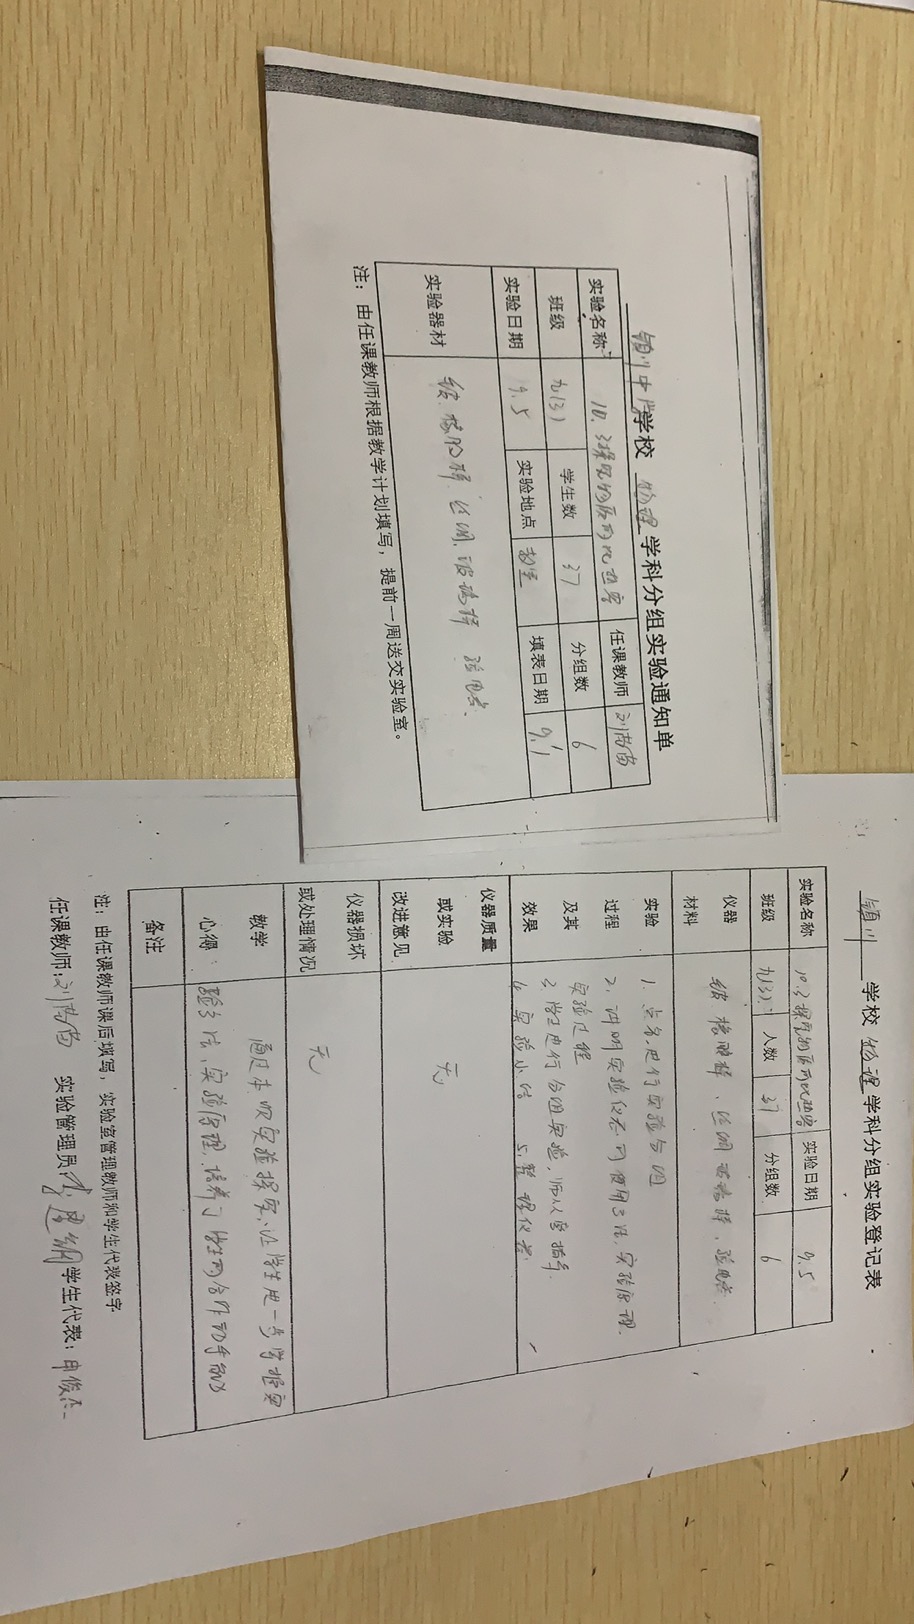 颍川中学学校 物理 学科分组实验通知单
实验名称 10.3探究物质的比热容 任课教师 刘尚尚
班级 九(3) 学生数 37 分组数 6
实验日期 9.5 实验地点 教室 填表日期 9.1
实验器材 橡胶棒 丝绸 玻璃棒 验电器
注：由任课教师根据教学计划填写，提前一周送交实验室。
颍川 学校 物理 学科分组实验登记表
实验名称 10.3探究物质的比热容 实验日期 9.5
班级 九(3) 人数 37 分组数 6
仪器材料 橡胶棒、丝绸 玻璃棒、验电器
实验过程及其效果
1. 进行实验分组
2. 讲明实验仪器的使用方法，实验原理
实验过程
3. 学生进行分组实验，师从旁指导
4. 实验小结 5. 整理仪器
仪器质量或实验改进意见 无
仪器损坏或处理情况 无
教学心得： 通过本次实验探究，让学生进一步掌握实
验方法，实验原理，培养了学生的合作动手能力
备注
注：由任课教师课后填写，实验室管理教师和学生代表签字
任课教师：刘尚尚 实验管理员 学生代表：申俊杰